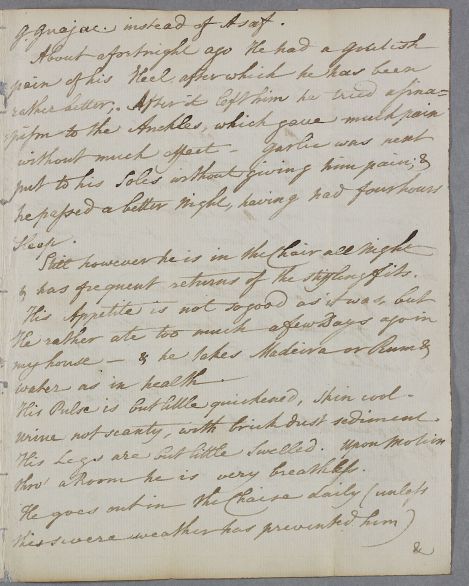 G. Guajac. instead of Asaf.
About a fortnight ago He had a goutish
pain of his Heel, after which he has been
rather better; After it left him he tried a sina=
=pism to the Anckles, which gave much pain
without much effect - Garlic was next
put to his Soles without giving him pain; &
he passed a better Night, having had four hours
Sleep.
Still however he is in the Chair all Night
& has frequent returns of the stifling fits.
His Appetite is not so good as it was, but
He rather ate too much a few Days ago in
my house — & he takes Madeira or Rum &
water as in health.
His Pulse is but little quickened, Skin cool -
urine not scanty, with brick dust sediment.
His Legs are but little Swelled. upon Motion
thro' a Room he is very breathless.
He goes out in the Chaise daily (unless
this severe weather has prevented him)
&c